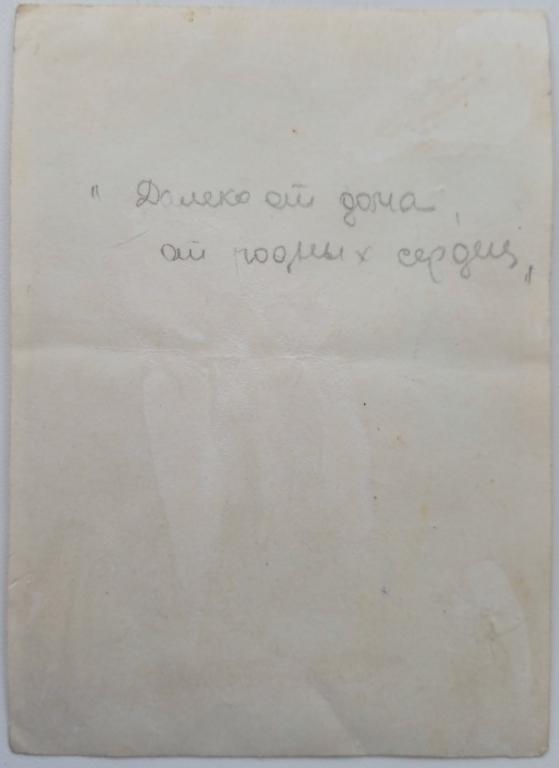 " Далеко от дома,
от родных сердец "